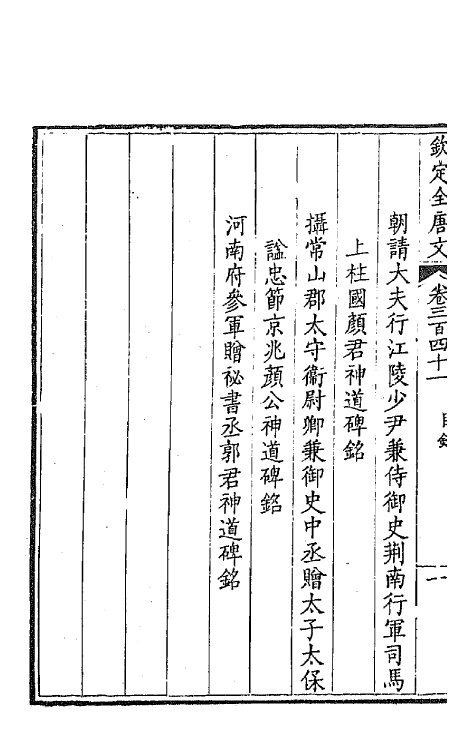 欽定全唐文 卷三百四十一 目錄 一
朝請大夫行江陵少尹兼侍御史荆南行軍司馬
上柱國顏君神道碑銘
攝常山郡太守衞尉卿兼御史中丞贈太子太保
諡忠節京兆顏公神道碑銘
河南府參軍贈祕書丞郭君神道碑銘